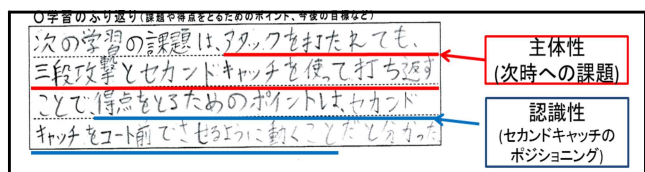 ○学習のふり返り(課題や得点をとるためのポイント、今後の目標など)
次の学習の課題は、アタックを打たれても、
三段攻撃とセカンドキャッチを使って打ち返す
ことで得点をとるためのポイントは、セカンド
キャッチをコート前でさせるように動くことだと分かった
主体性
(次時への課題)
認識性
(セカンドキャッチの
ポジショニング)